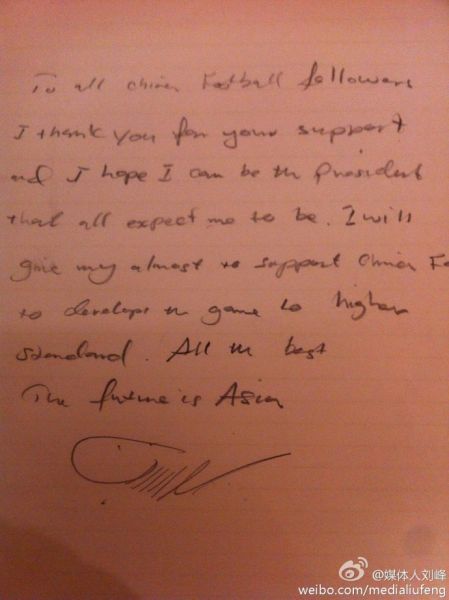 To all chines Football followers
I thank you for your support
and I hope I can be the President
that all expect me to be. I will
give my almost to support Chines Fo
to develope the game to higher
standard. All the best
The future is Asia
@媒体人刘峰
weibo.com/medialiufeng